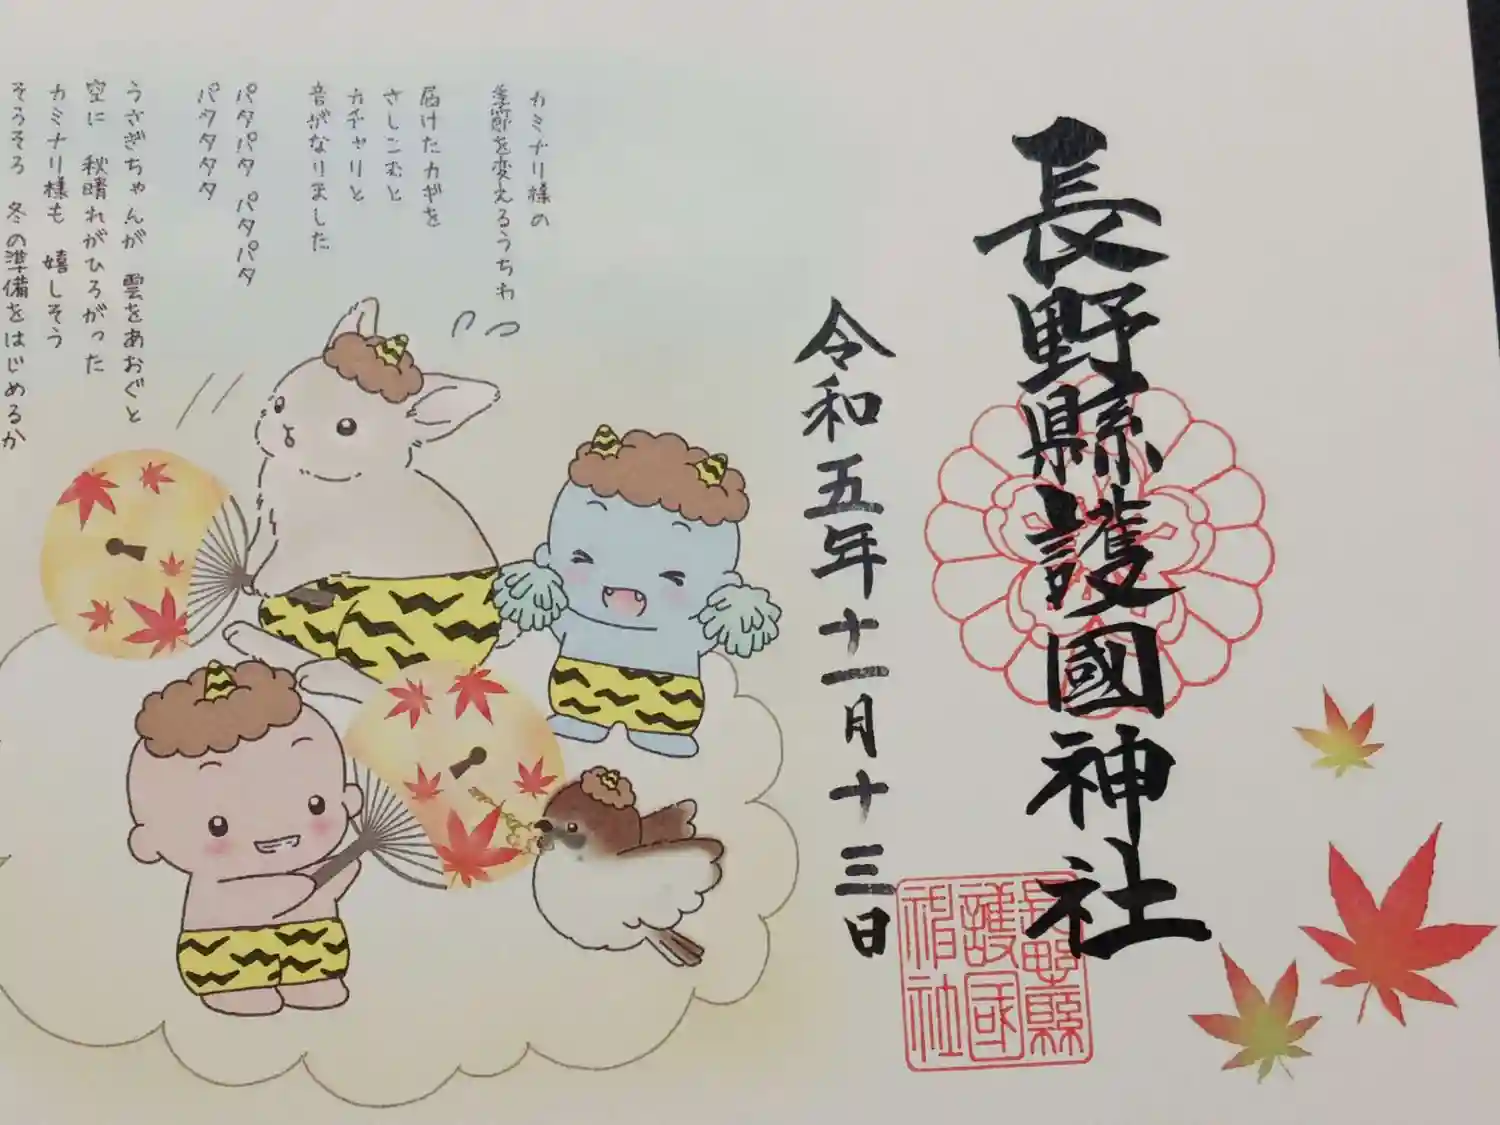 長野縣護國神社
令和五年十一月十三日
長野縣
護国
神社
カミナリ様の
季節を変えるうちわ
届けたカギを
さしこむと
カチャリと
音がなりました
パタパタ パタパタ
パタタタタ
うさぎちゃんが 雲をあおぐと
空に 秋晴れがひろがった
カミナリ様も 嬉しそう
そろそろ 冬の準備をはじめるか